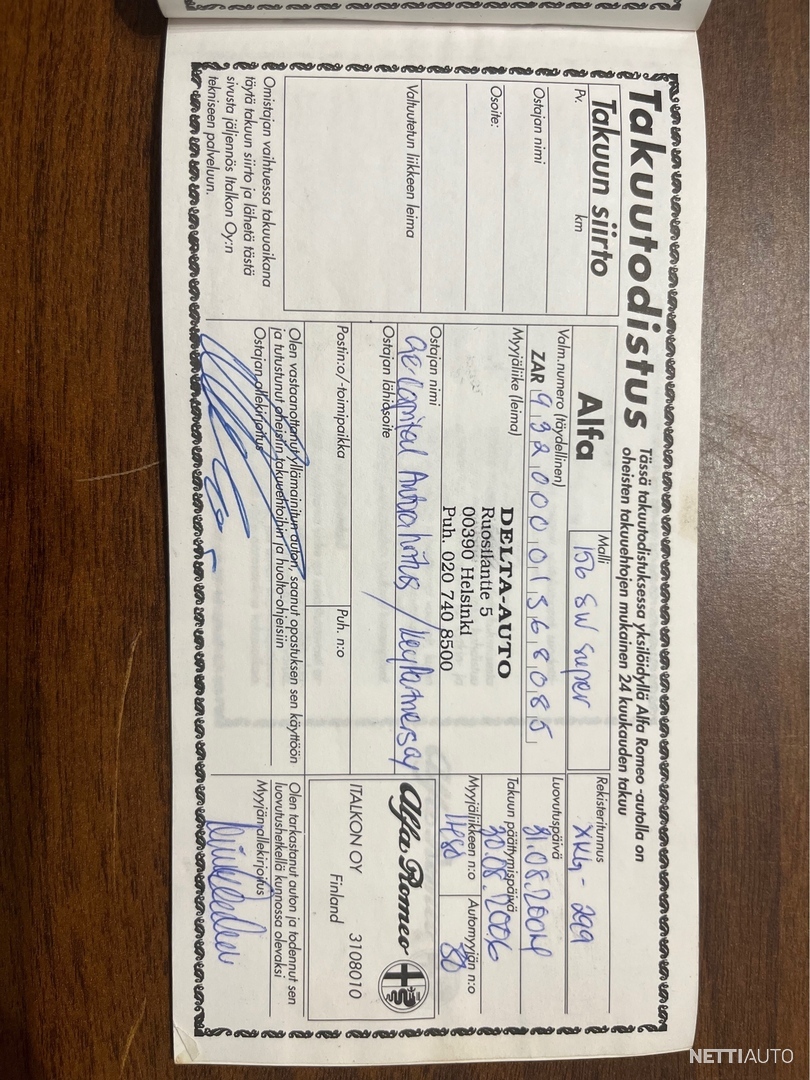 Takuutodistus
Tässä takuutodistuksessa yksilöidyllä Alfa Romeo -autolla on
oheisten takuuehtojen mukainen 24 kuukauden takuu
Takuun siirto
Pv.
km
Ostajan nimi
Osoite:
Valtuutetun liikkeen leima
Omistajan vaihtuessa takuuaikana
täytä takuun siirto ja lähetä tästä
sivusta jäljennös Italkon Oy:n
tekniseen palveluun.
Alfa
Malli
156 SW super
Rekisteritunnus
Valm.numero (täydellinen)
ZAR 93200001368085
Luovutuspäivä
31.08.2004
Myyjäliike (leima)
DELTA-AUTO
Ruosilantie 5
00390 Helsinki
Puh. 020 740 8500
Takuun päättymispäivä
30.08.2006
Myyjäliikkeen n:o
Automyyjän n:o
80
Ostajan nimi
Ge Capital Autorahoitus /
Ostajan lähiosoite
Postin:o/-toimipaikka
Puh. n:o
Alfa Romeo
ITALKON OY 3108010
Finland
Olen vastaanottanut yllämainitun auton, saanut opastuksen sen käyttöön
ja tutustunut oheisiin takuuehtoihin ja huolto-ohjeisiin
Ostajan allekirjoitus
Olen tarkastanut auton ja todennut sen
luovutushetkellä kunnossa olevaksi
Myyjän allekirjoitus
NETTIAUTO